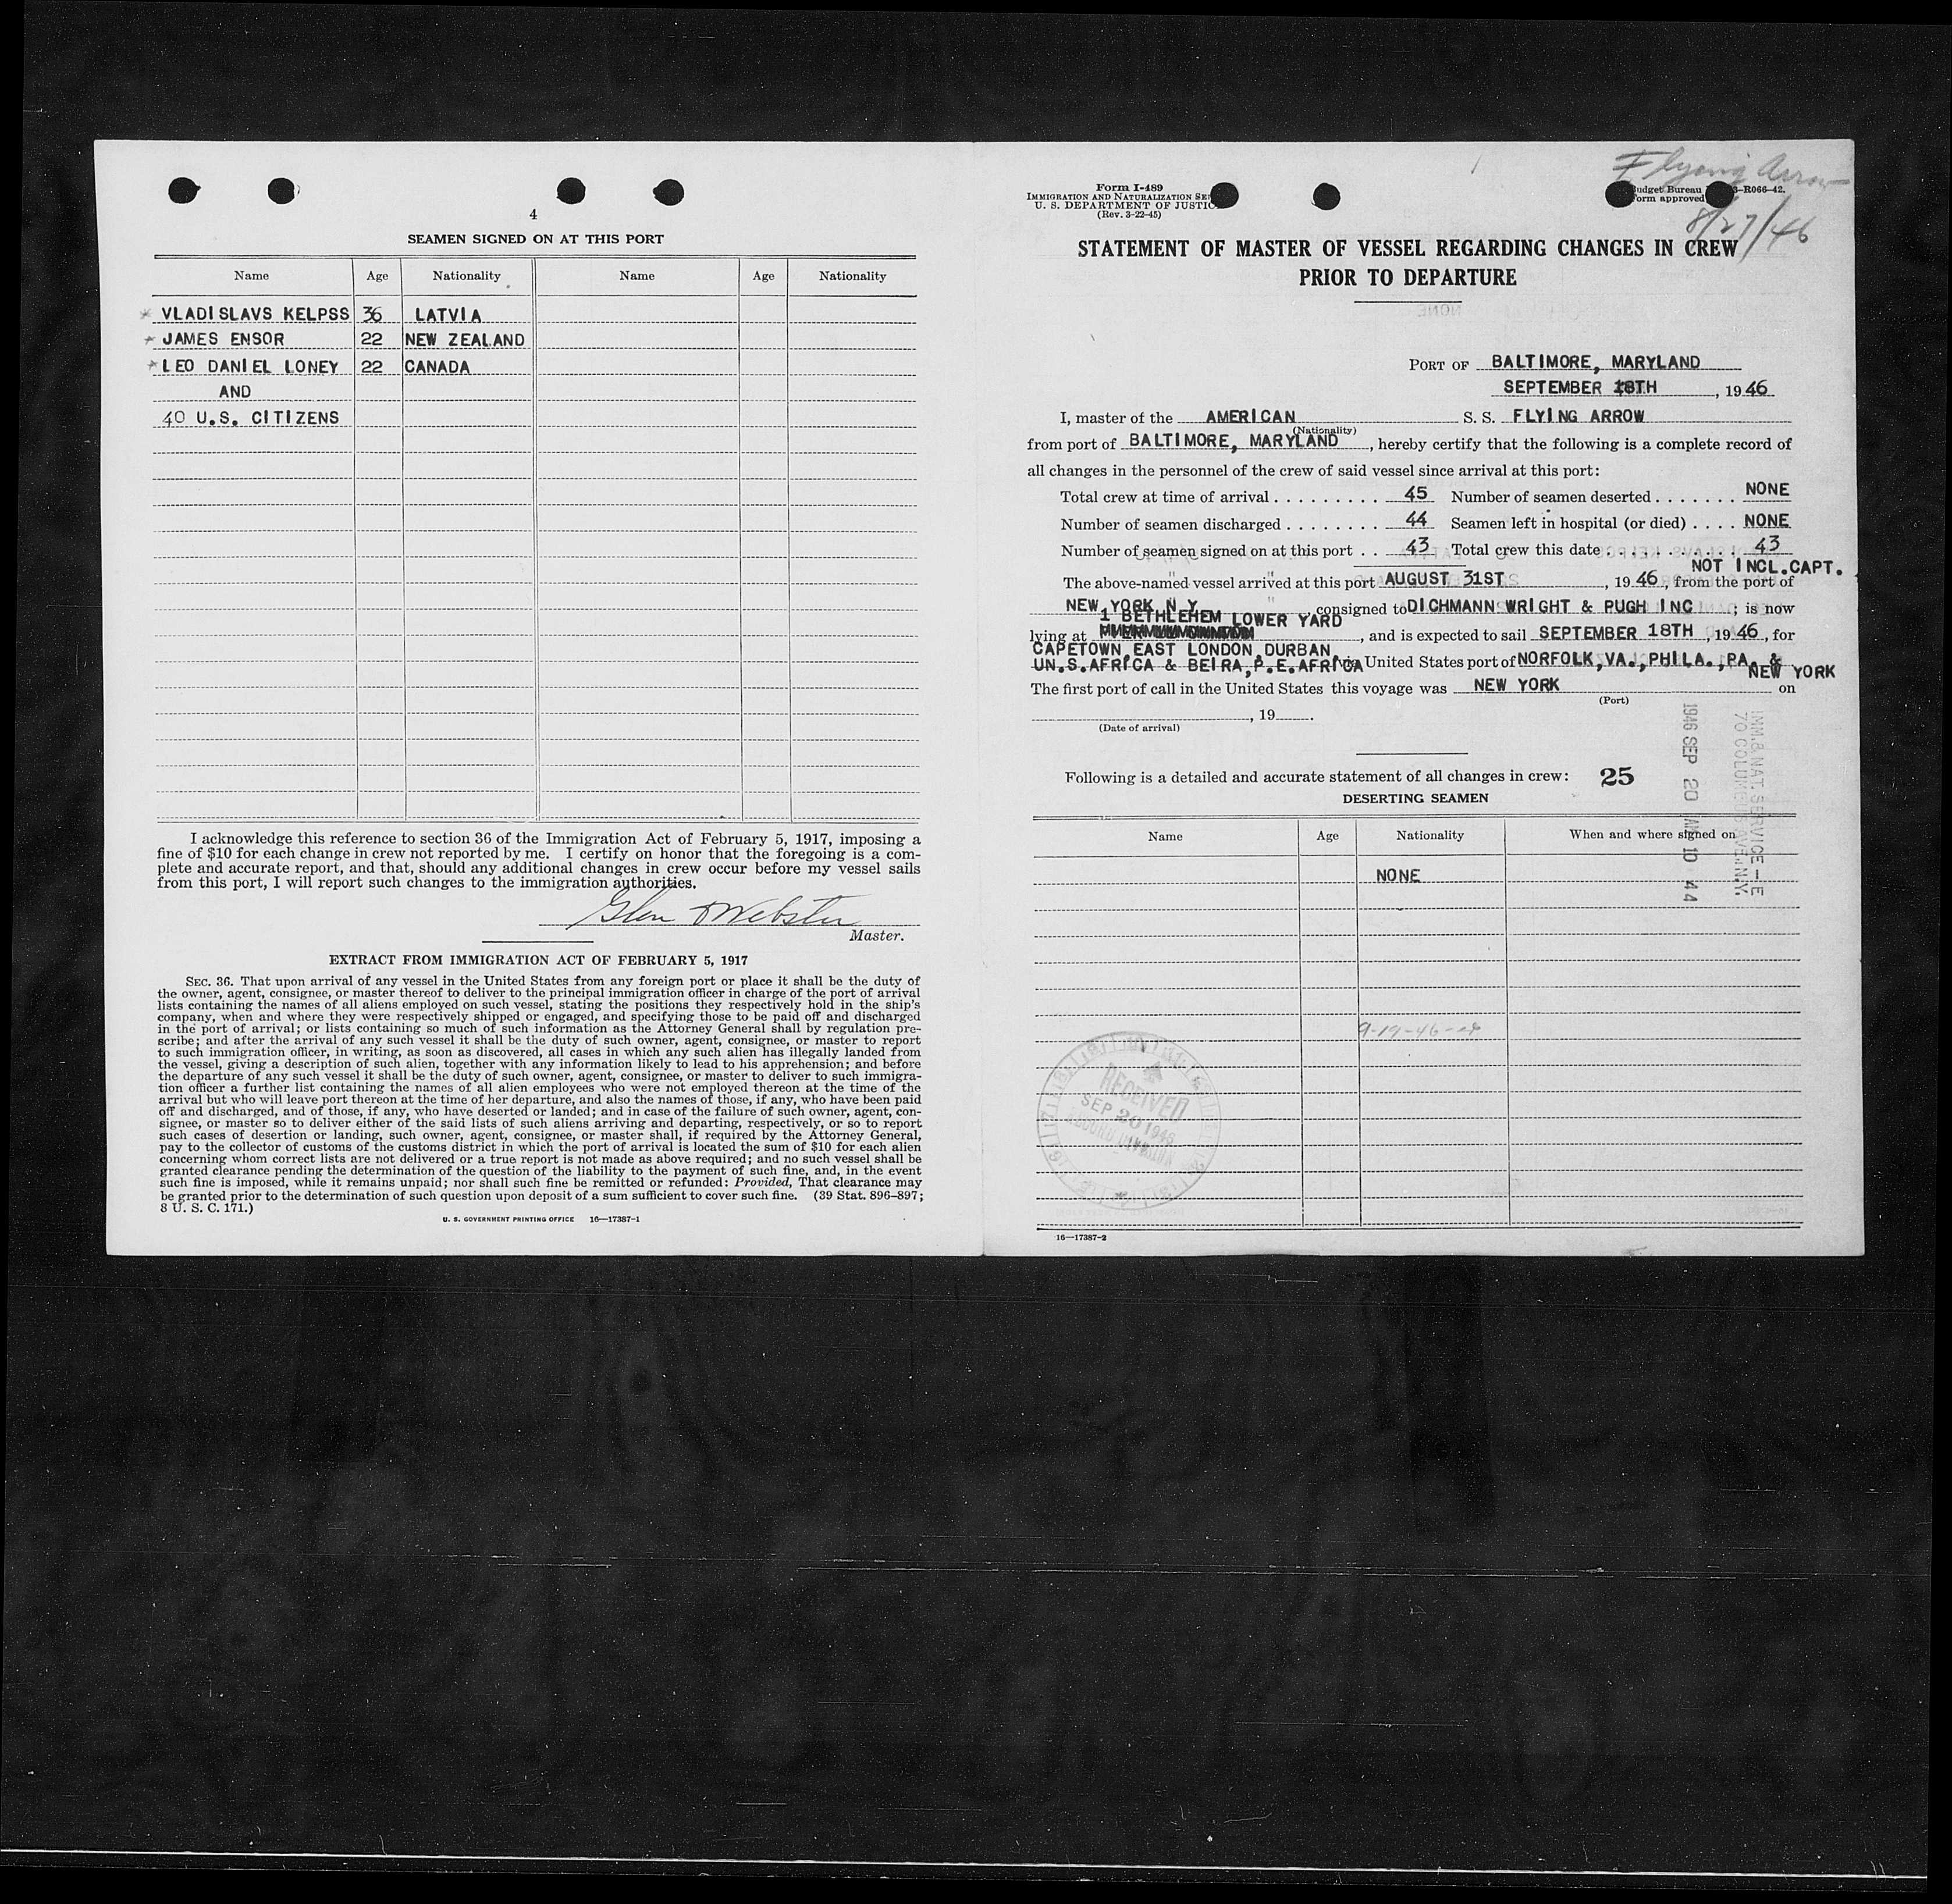 4
SEAMEN SIGNED ON AT THIS PORT
Name Age Nationality Name Age Nationality
* VLADISLAVS KELPSS 36 LATVIA
* JAMES ENSOR 22 NEW ZEALAND
* LEO DANIEL LONEY 22 CANADA
AND
40 U.S. CITIZENS
I acknowledge this reference to section 36 of the Immigration Act of February 5, 1917, imposing a
fine of $10 for each change in crew not reported by me. I certify on honor that the foregoing is a com-
plete and accurate report, and that, should any additional changes in crew occur before my vessel sails
from this port, I will report such changes to the immigration authorities.
Glen Webster
Master.
EXTRACT FROM IMMIGRATION ACT OF FEBRUARY 5, 1917
SEC. 36. That upon arrival of any vessel in the United States from any foreign port or place it shall be the duty of
the owner, agent, consignee, or master thereof to deliver to the principal immigration officer in charge of the port of arrival
lists containing the names of all aliens employed on such vessel, stating the positions they respectively hold in the ship's
company, when and where they were respectively shipped or engaged, and specifying those to be paid off and discharged
in the port of arrival; or lists containing so much of such information as the Attorney General shall by regulation pre-
scribe; and after the arrival of any such vessel it shall be the duty of such owner, agent, consignee, or master to report
to such immigration officer, in writing, as soon as discovered, all cases in which any such alien has illegally landed from
the vessel, giving a description of such alien, together with any information likely to lead to his apprehension; and before
the departure of any such vessel it shall be the duty of such owner, agent, consignee, or master to deliver to such immigra-
tion officer a further list containing the names of all alien employees who were not employed thereon at the time of the
arrival but who will leave port thereon at the time of her departure, and also the names of those, if any, who have been paid
off and discharged, and of those, if any, who have deserted or landed; and in case of the failure of such owner, agent, con-
signee, or master so to deliver either of the said lists of such aliens arriving and departing, respectively, or so to report
such cases of desertion or landing, such owner, agent, consignee, or master shall, if required by the Attorney General,
pay to the collector of customs of the customs district in which the port of arrival is located the sum of $10 for each alien
concerning whom correct lists are not delivered or a true report is not made as above required; and no such vessel shall be
granted clearance pending the determination of the question of the liability to the payment of such fine, and, in the event
such fine is imposed, while it remains unpaid; nor shall such fine be remitted or refunded: Provided, That clearance may
be granted prior to the determination of such question upon deposit of a sum sufficient to cover such fine. (39 Stat. 896–897;
8 U. S. C. 171.)
U. S. GOVERNMENT PRINTING OFFICE 16—17387-1
Flying Arrow
8/27/46
Form I-489
IMMIGRATION AND NATURALIZATION SER
U. S. DEPARTMENT OF JUSTIC
(Rev. 3-22-45)
udget Bureau -R066-42.
orm approved
STATEMENT OF MASTER OF VESSEL REGARDING CHANGES IN CREW
PRIOR TO DEPARTURE
PORT OF BALTIMORE, MARYLAND
SEPTEMBER 18TH, 1946
I, master of the AMERICAN S. S. FLYING ARROW
(Nationality)
from port of BALTIMORE, MARYLAND, hereby certify that the following is a complete record of
all changes in the personnel of the crew of said vessel since arrival at this port:
Total crew at time of arrival . . . . . . . . . 45 Number of seamen deserted . . . . . . . NONE
Number of seamen discharged . . . . . . . . 44 Seamen left in hospital (or died) . . . . NONE
Number of seamen signed on at this port . . 43 Total crew this date . . . . . . . . . . . 43
NOT INCL.CAPT.
The above-named vessel arrived at this port AUGUST 31ST, 1946, from the port of
NEW YORK N Y, consigned to DICHMANN WRIGHT & PUGH INC; is now
1 BETHLEHEM LOWER YARD
lying at , and is expected to sail SEPTEMBER 18TH, 1946, for
CAPETOWN,EAST LONDON,DURBAN,
UN.S.AFRICA & BEIRA,P.E.AFRICA via United States port of NORFOLK,VA.,PHILA.,PA. &
NEW YORK
The first port of call in the United States this voyage was NEW YORK on
(Port)
, 19 .
(Date of arrival)
IMM.& NAT. SERVICE—E
70 COLUMBUS AVE.N.Y.
1946 SEP 20 AM 10 44
Following is a detailed and accurate statement of all changes in crew: 25
DESERTING SEAMEN
Name Age Nationality When and where signed on
NONE
9-19-46
RECEIVED
SEP 20 1946
16—17387-2